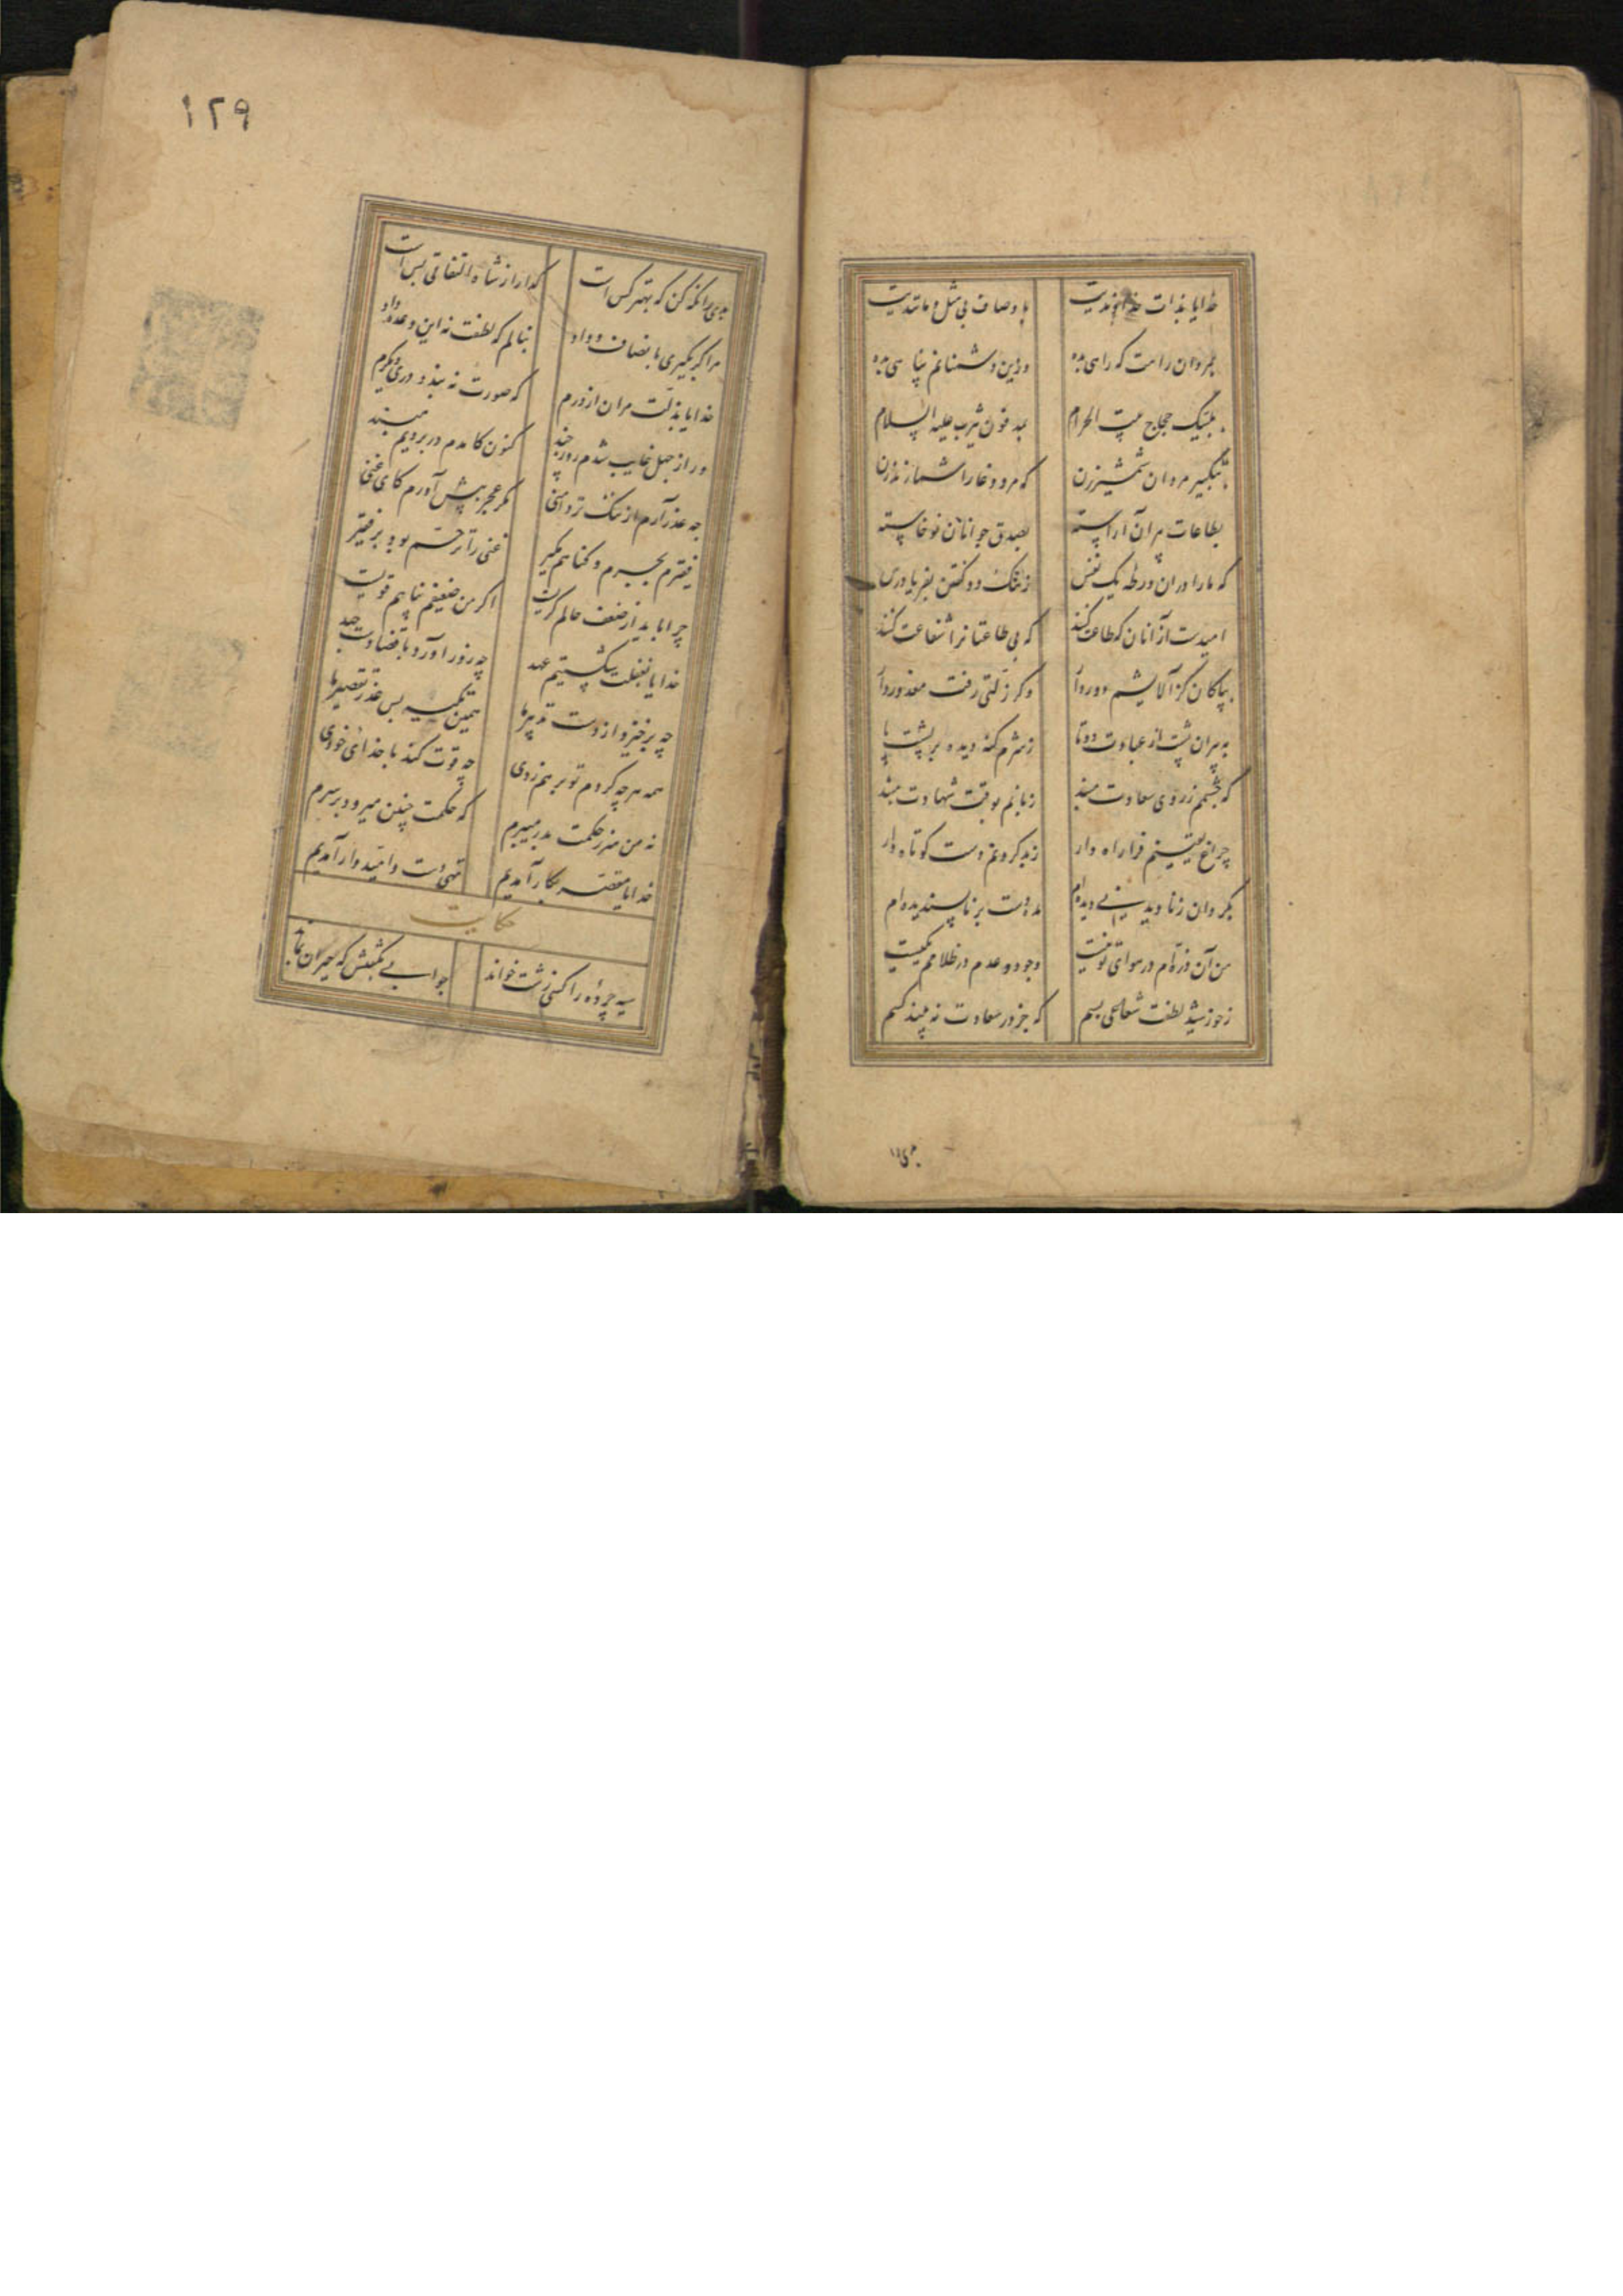 خدایا بذات خداوندیت باوصاف بی مثل و مانندیت
بمردان راهت که راهی بده وزین دشمنانم پناهی بده
بلبیک حجاج بیت الحرام بمدفون یثرب علیه السلام
بتکبیر مردان شمشیرزن که مرد وغا را شمارند زن
بطاعات پیران آراسته بصدق جوانان نوخاسته
که ما را در آن ورطه یک نفس ز ننک دو کفتن بفریاد رس
امیدست از آنان که طاعت کنند که بی طاعتانرا شفاعت کنند
بپاکان کز آلایشم دور دار وکر زلتی رفت معذور دار
به پیران پشت از عبادت دوتا ز شرم کنه دیده بر پشت پا
که چشمم ز روی سعادت مبند زبانم بوقت شهادت مبند
چراغ یقینم فرا راه دار ز بد کردنم دست کوتاه دار
بکردان ز نادیدنی دیده ام مده دست بر ناپسندیده ام
من آن ذره ام در هوای تو نیست وجود و عدم در ظلامم یکیست
ز خورشید لطفت شعاعی بسم که جز در شعاعت نه بیند کسم
بدی را
۱۲۹
بدی را نکه کن که بهتر کس است کدا را ز شاه التفاتی بس است
مرا کر بکیری بانصاف و داد بنالم که لطفت نه این وعده داد
خدایا بذلت مران از درم که صورت نه بندد دری دیکرم
ور از جهل غایب شدم روز چند کنون کامدم در برویم مبند
چه عذر آرم از ننک تردامنی مکر عجز پیش آورم کای غنی
فقیرم بجرم و کناهم مکیر غنی را ترحم بود بر فقیر
چرا باید از ضعف حالم کریست اکر من ضعیفم پناهم قویست
خدایا بغفلت شکستیم عهد چه زور آورد با قضا دست جهد
چه برخیزد از دست تدبیرها همین نکته بس عذر تقصیرها
همه هرچه کردم تو برهم زدی چه قوت کند با خدائی خودی
نه من سر ز حکمت بدر میبرم که حکمت چنین میرود بر سرم
خدایا مقصر بکار آمدیم تهی دست و امیدوار آمدیم
حکایت
سیه چرده را کسی زشت خواند جوابی بکفتش که حیران بماند